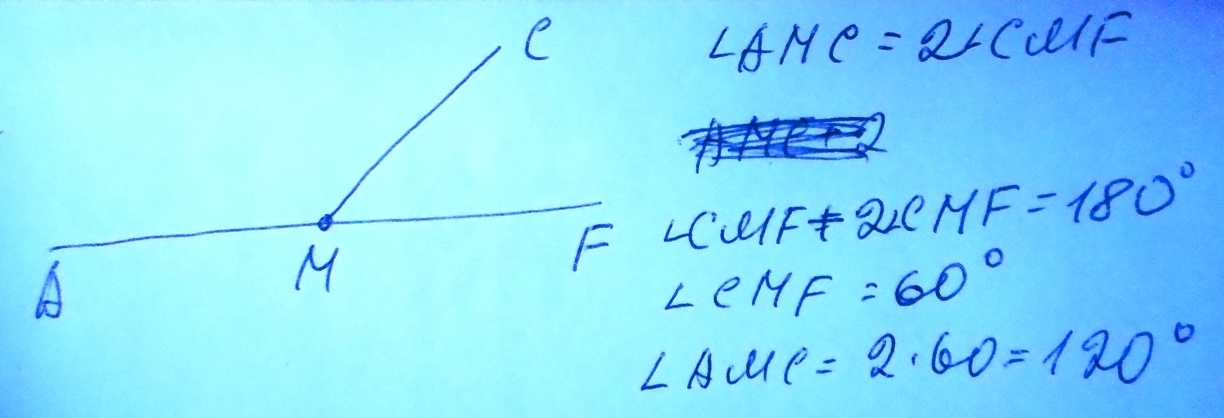 C
∠AMC = 2∠CMF
∠CMF + 2∠CMF = 180°
A
M
F
∠CMF = 60°
∠AMC = 2·60 = 120°